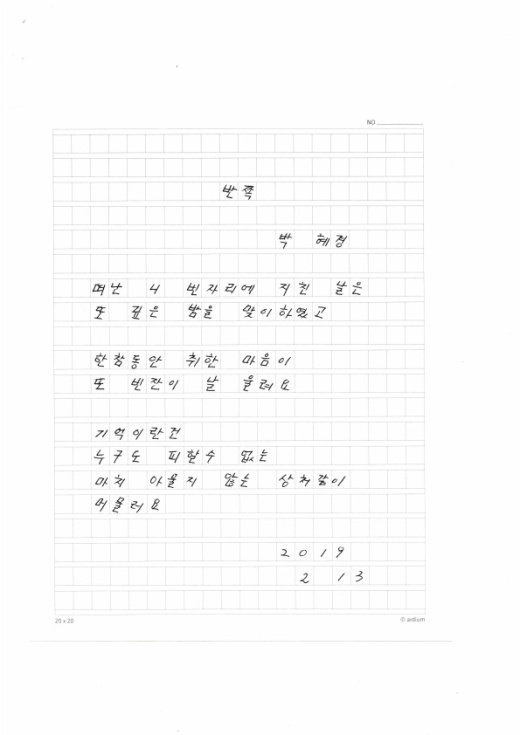 NO
반쪽
박 혜정
떠난 니 빈자리에 지친 날은
또 깊은 밤을 맞이하였고
한참동안 취한 마음이
또 빈잔이 날 울려요
기억이란건
누구도 피할수 없는
마치 아물지 않는 상처같이
머물러요
2019
2 13
20 x 20
© ardium